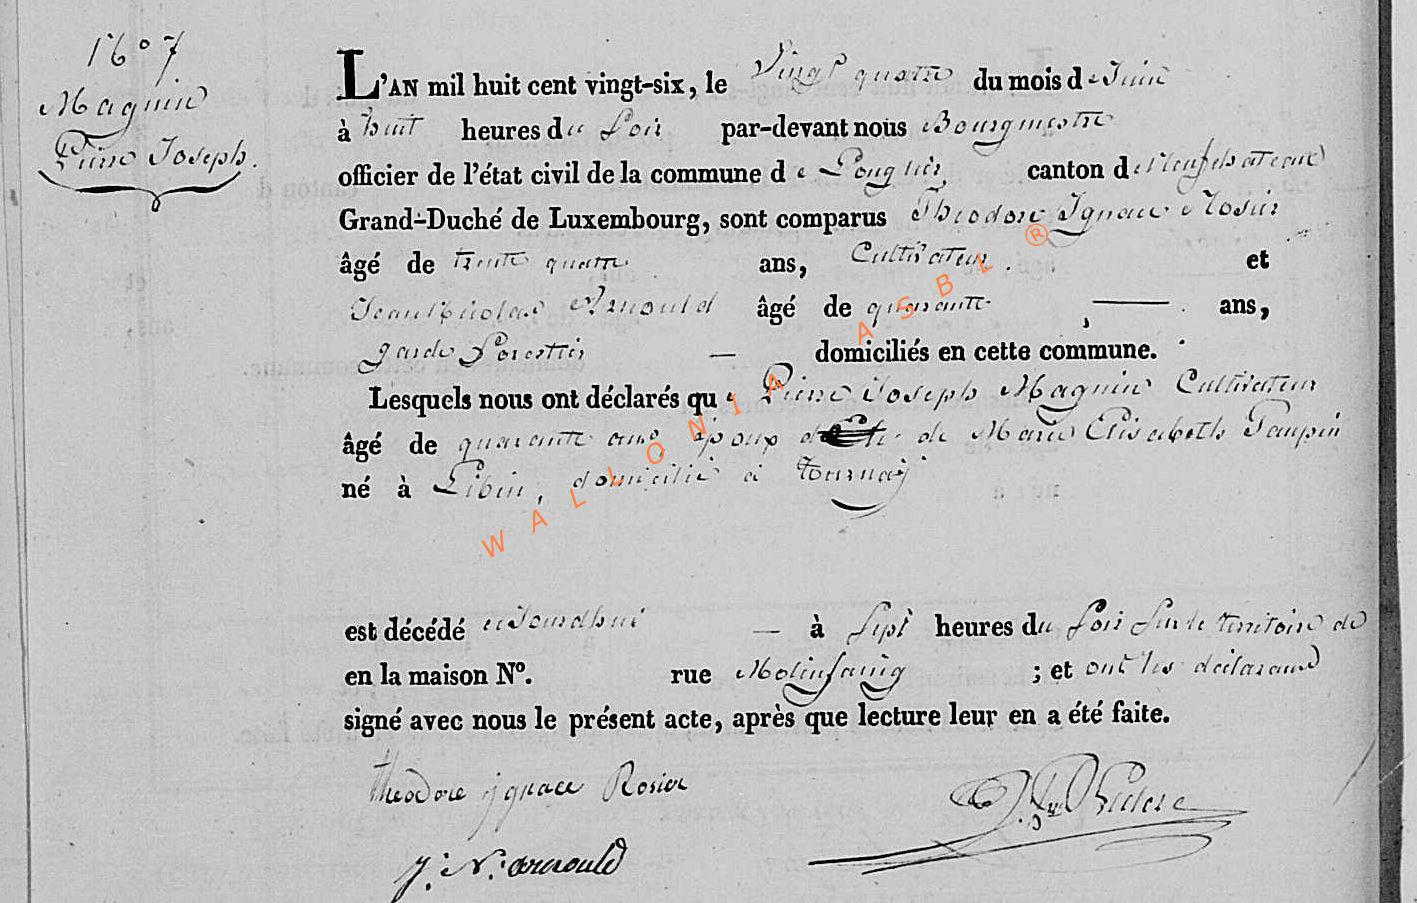 N° 7
Magnin
Pierre Joseph.
L'AN mil huit cent vingt-six, le Vingt quatre du mois de Juin
à huit heures du Soir par-devant nous Bourgmestre
officier de l'état civil de la commune de Longlier, canton de Neufchateau
Grand-Duché de Luxembourg, sont comparus Theodore Ignace Rosier
âgé de trente quatre ans, Cultivateur. et
Jean Nicolas Arnould âgé de quarante ans,
garde Forestier — domiciliés en cette commune.
Lesquels nous ont déclarés que Pierre Joseph Magnin Cultivateur
âgé de quarante ans, époux de Marie Elisabeth Paupin
né à Libin, domicilié à Tournay
est décédé aujourdhui — à Sept heures du Soir Sur le territoire de
en la maison N°. rue Molinfaing ; et ont les déclarans
signé avec nous le présent acte, après que lecture leur en a été faite.
theodore ignace Rosier
j: N: arnould
WALLONIA ASBL ®